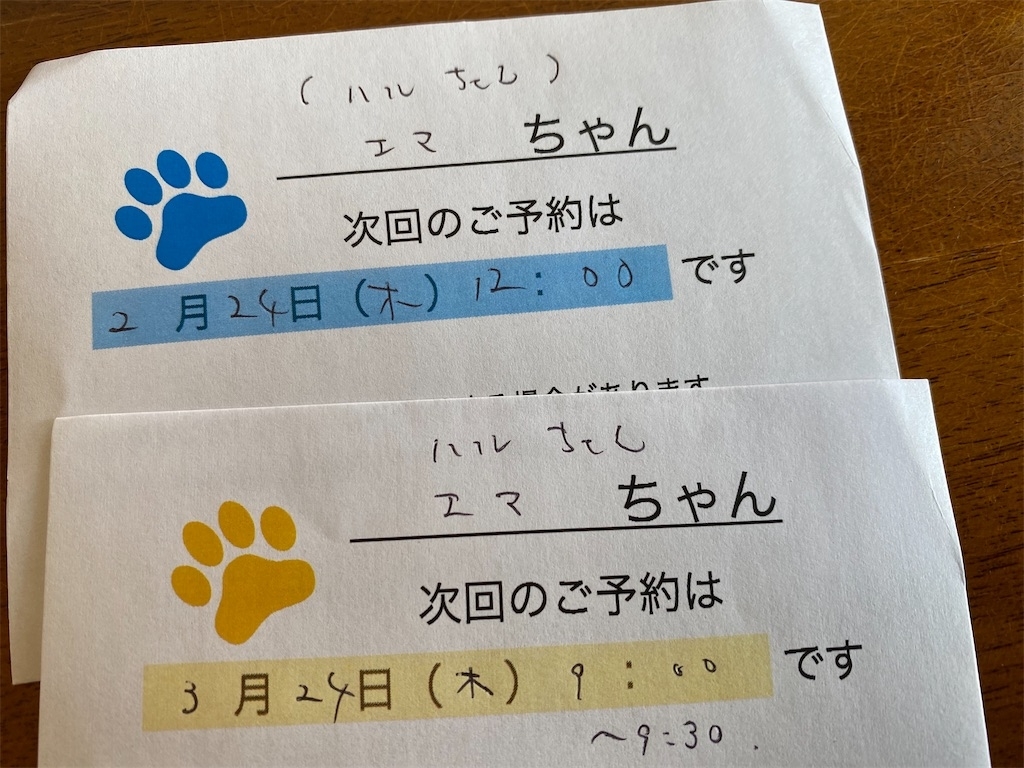 (ハルちゃん)
エマ ちゃん
次回のご予約は
2月24日(木)12:00です
る場合があります
ハルちゃん
エマ ちゃん
次回のご予約は
3月24日(木)9:00です
〜9:30.